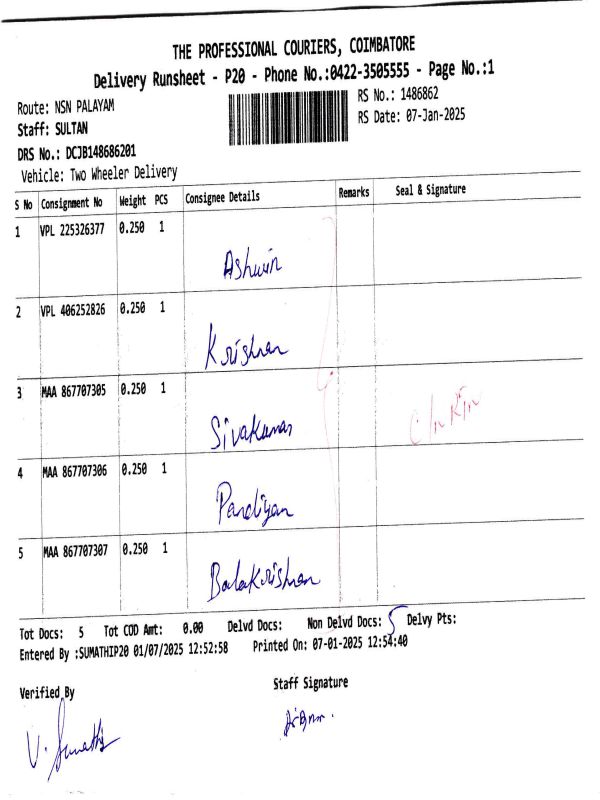 THE PROFESSIONAL COURIERS, COIMBATORE
Delivery Runsheet - P20 - Phone No.:0422-3505555 - Page No.:1
Route: NSN PALAYAM RS No.: 1486862
Staff: SULTAN RS Date: 07-Jan-2025
DRS No.: DCJB148686201
Vehicle: Two Wheeler Delivery
S No Consignment No Weight PCS Consignee Details Remarks Seal & Signature
1 VPL 225326377 0.250 1
Ashwin
2 VPL 406252826 0.250 1
Krishnan
3 MAA 867707305 0.250 1
Sivakumar
4 MAA 867707306 0.250 1
Pandiyan
5 MAA 867707307 0.250 1
Balakrishnan
Tot Docs: 5 Tot COD Amt: 0.00 Delvd Docs: Non Delvd Docs: 5 Delvy Pts:
Entered By :SUMATHIP20 01/07/2025 12:52:58 Printed On: 07-01-2025 12:54:40
Verified By Staff Signature
V. Sumathi